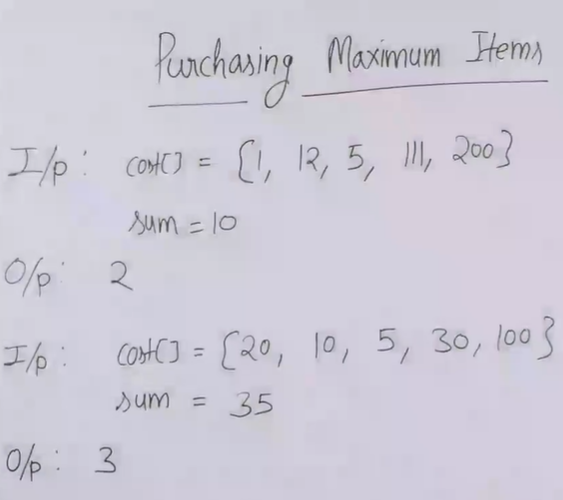 Purchasing Maximum Items
I/p : cost[] = {1, 12, 5, 111, 200}
sum = 10
O/p : 2
I/p : cost[] = {20, 10, 5, 30, 100}
sum = 35
O/p : 3